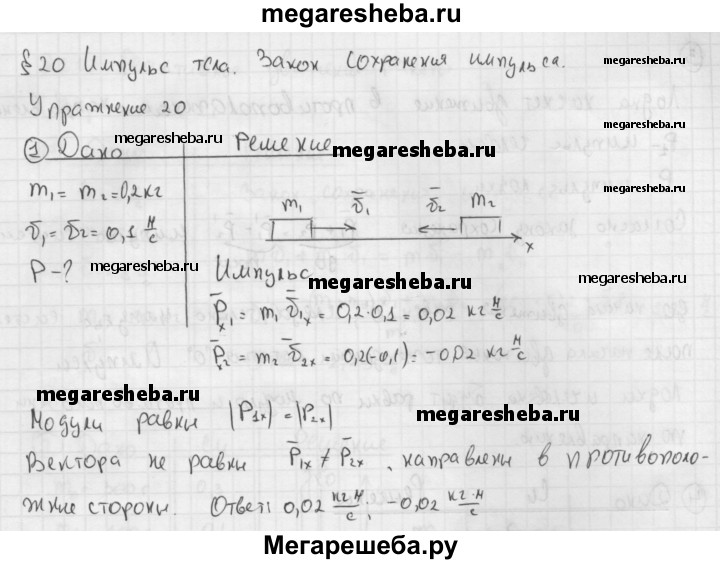 megaresheba.ru
§20 Импульс тела. Закон сохранения импульса. megaresheba.ru
Упражнение 20
megaresheba.ru
① Дано Решение
megaresheba.ru
m₁ = m₂ = 0,2 кг m₁ v̄₁ v̄₂ m₂ megaresheba.ru
v̄₁ = v̄₂ = 0,1 м/с x
P - ? megaresheba.ru Импульс megaresheba.ru
P̄x₁ = m₁ v̄₁x = 0,2·0,1 = 0,02 кг м/с
P̄x₂ = m₂ v̄₂x = 0,2(-0,1) = -0,02 кг м/с
megaresheba.ru
Модули равны |P₁x| = |P₂x| megaresheba.ru
Вектора не равны P̄₁x ≠ P̄₂x, направлены в противополо-
жные стороны. Ответ: 0,02 кг·м/с, -0,02 кг·м/с
Мегарешеба.ру